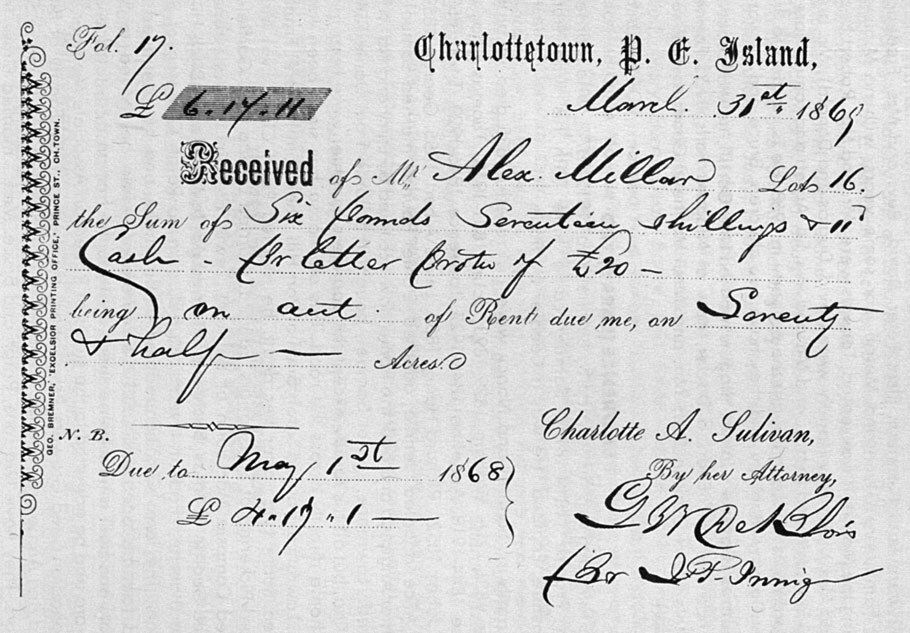 Fol. 17.
Charlottetown, P. E. Island,
£ 6.17.11
March. 31st 1869
Received of Mr Alex. Millar Lot 16.
the Sum of Six Pounds Seventeen Shillings & 11
Cash – of £20 –
being on acct. of Rent due me, on Seventy
& half — Acres.
N. B.
Due to May 1st 1868
£ 4.17.1 —
Charlotte A. Sulivan,
By her Attorney,
G W DeBlois
Per
GEO. BREMNER, "EXCELSIOR PRINTING OFFICE," PRINCE ST., CH.TOWN.